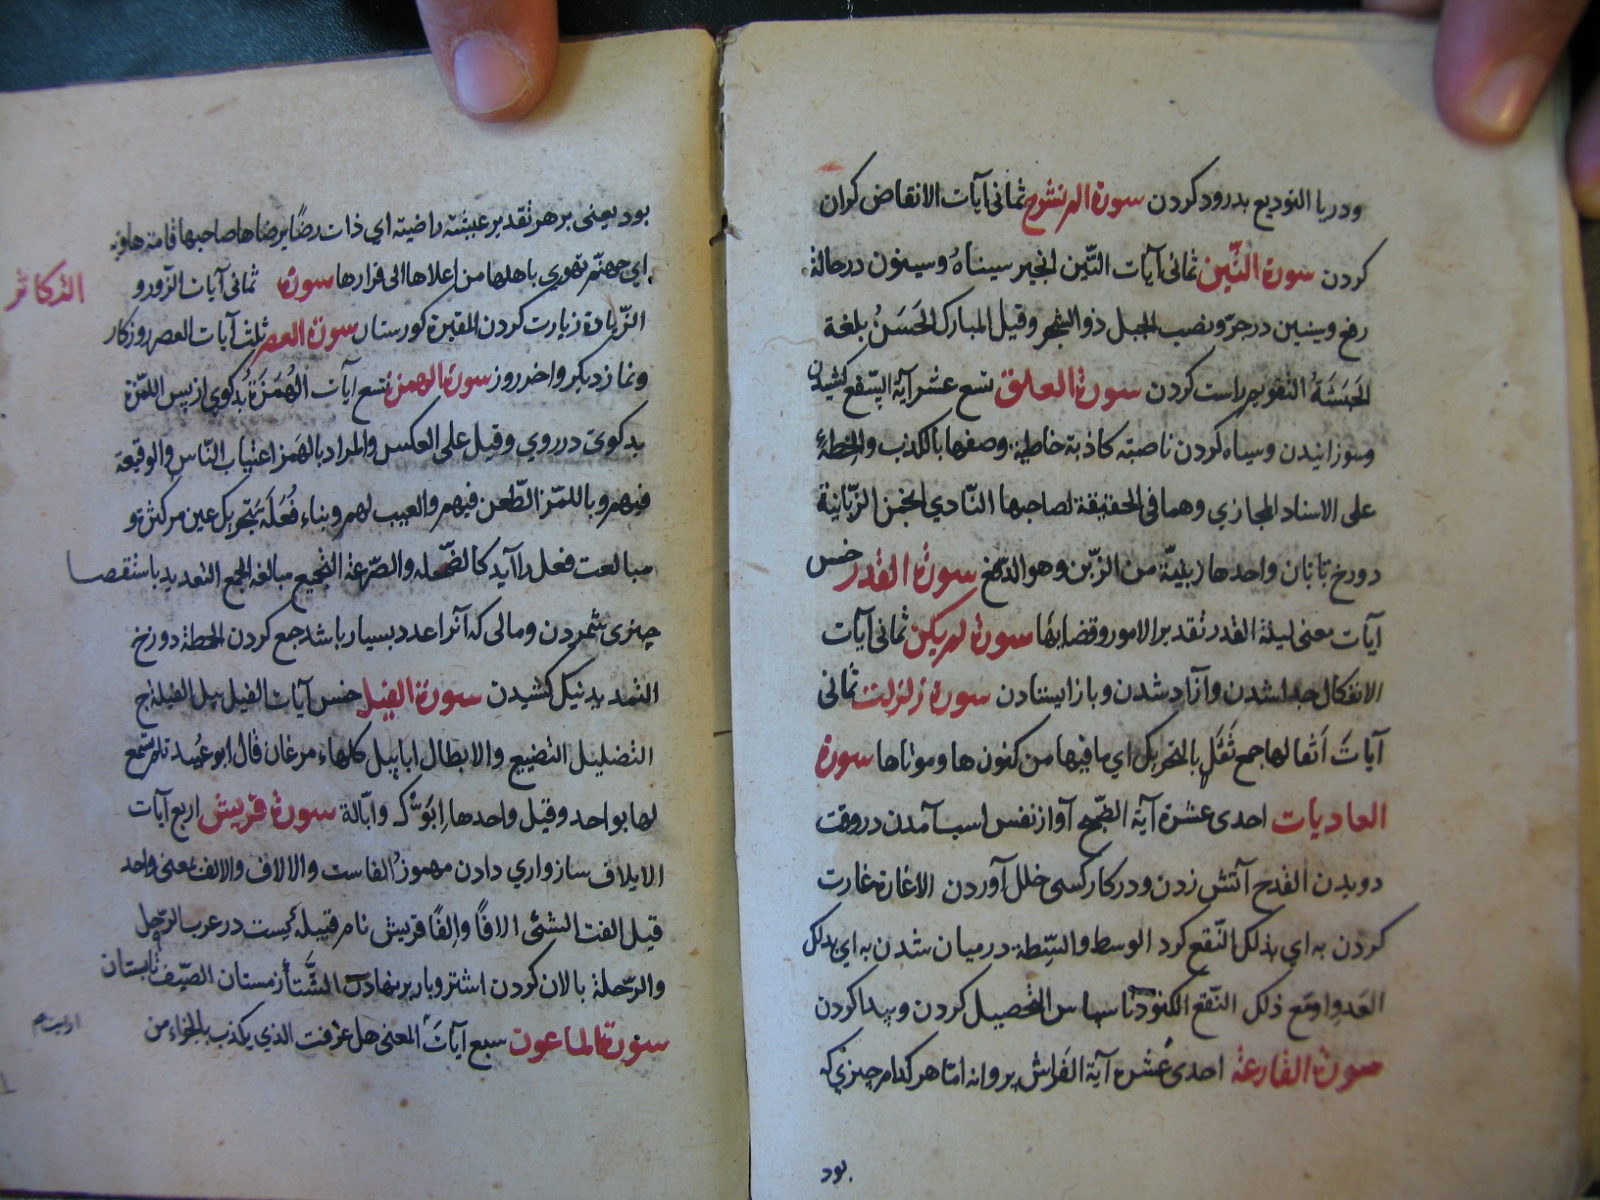 ودریا التودیع بدرود کردن سورة الم نشرح ثمانی آیات الانقاض کران
کردن سورة التّین ثمانی آیات التّین انجیر سیناء وسینون در حالة
رفع وسینین در جرّ ونصب الجبل ذو الشجر وقیل المبارک الحَسَنُ بلغة
الحَبَشَةُ التقویم راست کردن سورة العلق تسع عشر آیة السّفع کشیدن
وسوزانیدن وسیاه کردن ناصیة کاذبة خاطئة وصفها بالکذب والخطاءِ
علی الاسناد المجازی وهما فی الحقیقة لصاحبها النّادی انجمن الزّبانیة
دوزخ بانان واحدها زبنیّة من الزّبن وهو الدّفع سورة القدر خمس
آیات یعنی لیلة القدر تقدیر الامور وقضایها سورة لم یکن ثمانی آیات
الانفکاک جدا شدن وآزاد شدن وباز ایستادن سورة زلزلت ثمانی
آیات اَثقالها جمع ثَقَل بالتحریک ای ما فیها من کنوزها وموتاها سورة
العادیات احدی عشرة آیة الضّبح آواز نفس اسب آمدن در وقت
دویدن القدح آتش زدن ودر کار کسی خلل آوردن الاغارة غارت
کردن به ای بذلک النّقع کرد الوسط والسّطة در میان شدن به ای بذلک
العَدو او مع ذلک النّقع الکنود ناسپاس التحصیل کردن وپیدا کردن
سورة القارعة احدی عشرة آیة الفَراش پروانه امّا هر کدام چیزی که
بود
بود یعنی بر هر تقدیر عیشة راضیة ای ذات رضًا یرضاها صاحبها فامّه هاویه
ای جهنّم تهوی باهلها من اعلاها الی قرارها سورة ثمانی آیات الزّور و
التکاثر
الزّیادة زیارت کردن المقبرة کورستان سورة العصر ثلث آیات العصر روزکار
ونماز دیکر واخر روز سورة الهمزة تسع آیات الهُمَزَةُ بدکوی از پس اللمزة
بدکوی در روی وقیل علی العکس والمراد بالهَمز اغتیاب النّاس والوقیعة
فیهم وباللمّز الطّعن فیهم والعیب لهم وبناء فُعَلَة بتحریک عین مرکثرت و
مبالغت فعل را آید کالضّحکه والصّرعة التجمیع مبالغة الجمع التعدید باستقصا
چیزی شمردن ومالی که آنرا عدد بسیار باشد جمع کردن الحطمة دوزخ
التمدید نیک کشیدن سورة الفیل خمس آیات الفیل پیل الفیلة ج
التضلیل التضییع والابطال ابابیل کلهاء مرغان قال ابو عُبید لم نسمع
لها بواحد وقیل واحدها اِبّوَلٌ کـ وابّالة سورة قریش اربع آیات
الایلاف سازواری دادن مهموزُ الفاست والالاف والالف بمعنی واحد
قیل الفت الشئی الافًا واِلفًا قریش نام قبیله ایست در عرب الرّحل
والرّحلة بالان کردن اشتر وبار بر نهادن الشّتأ زمستان الصّیف تابستان
سورة الماعون سبع آیات المعنی هل عرفت الذی یکذب بالجزاء من